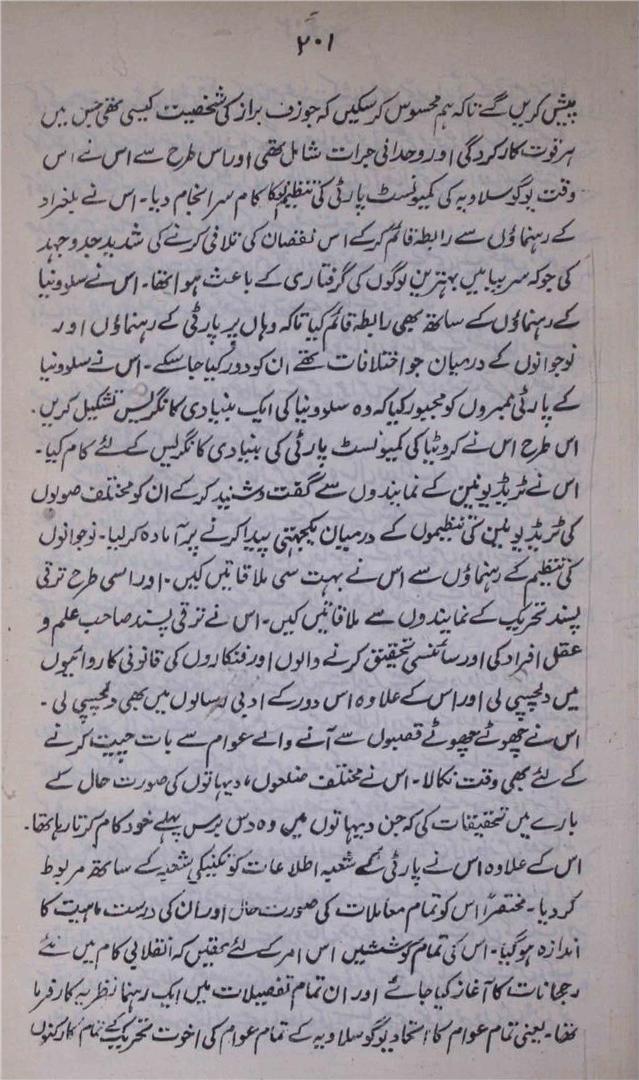 ۲۰۱
پیش کریں گے تاکہ ہم محسوس کر سکیں کہ جوزف براز کی شخصیت کیسی تھی جس میں
ہر قوت کارکردگی اور وجدانی جرات شامل تھی اور اس طرح سے اس نے اس
وقت یوگوسلاویہ کی کمیونسٹ پارٹی کی تنظیم کا کام سرانجام دیا۔ اس نے بلغراد
کے رہنماؤں سے رابطہ قائم کر کے اس نقصان کی تلافی کرنے کی شدید جدوجہد
کی جو کہ سربیا میں بہترین لوگوں کی گرفتاری کے باعث ہوا تھا۔ اس نے سلوونیا
کے رہنماؤں کے ساتھ بھی رابطہ قائم کیا تاکہ وہاں پر پارٹی کے رہنماؤں اور
نوجوانوں کے درمیان جو اختلافات تھے ان کو دور کیا جا سکے۔ اس نے سلوونیا
کے پارٹی ممبروں کو مجبور کیا کہ وہ سلوونیا کی ایک بنیادی کانگریس تشکیل کریں۔
اس طرح اس نے کروٹیا کی کمیونسٹ پارٹی کی بنیادی کانگریس کے لئے کام کیا۔
اس نے ٹریڈ یونین کے نمایندوں سے گفت و شنید کر کے ان کو مختلف صوبوں
کی ٹریڈ یونین کی تنظیموں کے درمیان یکجہتی پیدا کرنے پر آمادہ کر لیا۔ نوجوانوں
کی تنظیم کے رہنماؤں سے اس نے بہت سی ملاقاتیں کیں۔ اور اسی طرح ترقی
پسند تحریک کے نمایندوں سے ملاقاتیں کیں۔ اس نے ترقی پسند صاحب علم و
عقل افراد کی اور سائنسی تحقیق کرنے والوں اور فنکاروں کی قانونی کاروائیوں
میں دلچسپی لی اور اس کے علاوہ اس دور کے ادبی رسالوں میں بھی دلچسپی لی۔
اس نے چھوٹے چھوٹے قصبوں سے آنے والے عوام سے بات چیت کرنے
کے لئے بھی وقت نکالا۔ اس نے مختلف ضلعوں، دیہاتوں کی صورت حال کے
بارے میں تحقیقات کی کہ جن دیہاتوں میں وہ دس برس پہلے خود کام کرتا رہا تھا۔
اس کے علاوہ اس نے پارٹی کے شعبہ اطلاعات کو تکنیکی شعبہ کے ساتھ مربوط
کر دیا۔ مختصراً اس کو تمام معاملات کی صورت حال اور ان کی درست ماہیت کا
اندازہ ہو گیا۔ اس کی تمام کوششیں اس امر کے لئے تھیں کہ انقلابی کام میں نئے
رجحانات کا آغاز کیا جائے اور ان تمام تفصیلات میں ایک رہنما نظریہ کارفرما
تھا۔ یعنی تمام عوام کا اتحاد یوگوسلاویہ کے تمام عوام کی اخوت تحریک کے تمام کارکنوں